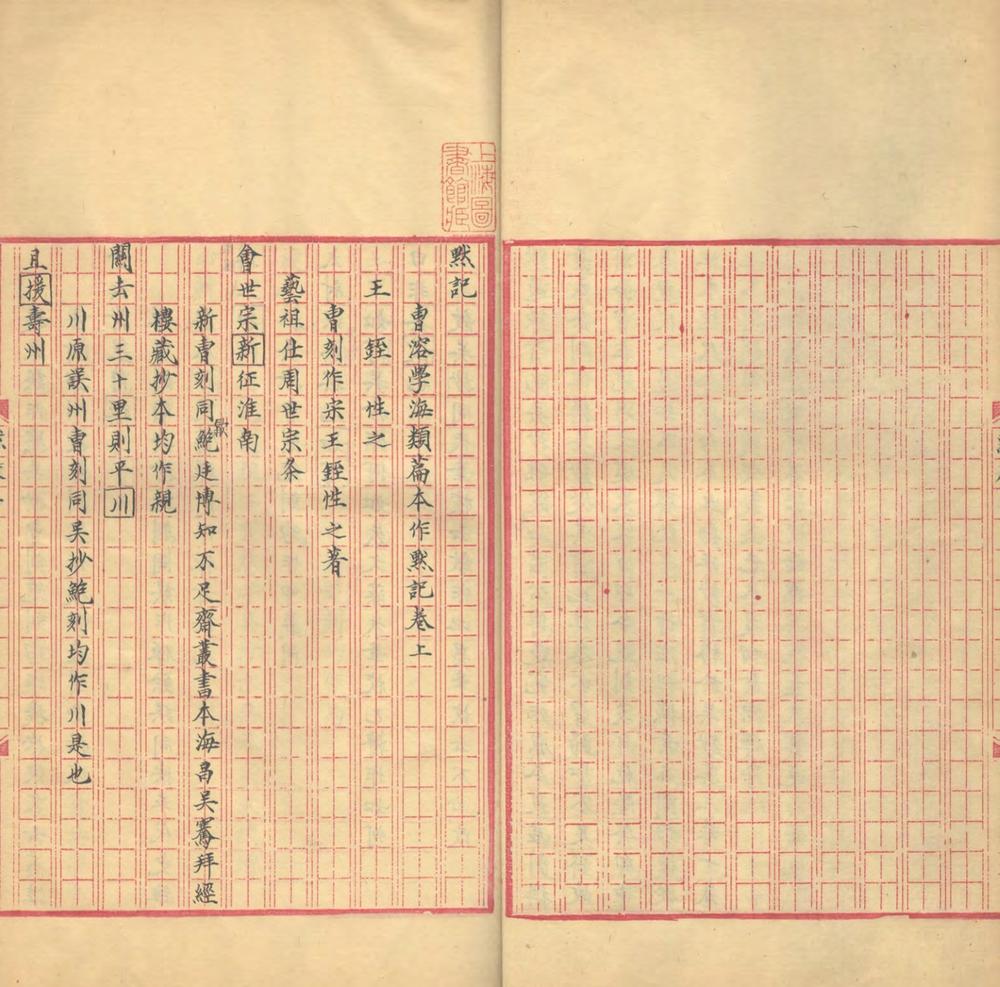 上海圖書館藏
默記
曹溶學海類萹本作默記卷上
王銍性之
曹刻作宋王銍性之著
藝祖仕周世宗条
會世宗新征淮南
新曹刻同歙鮑廷博知不足齋叢書本海昌吳騫拜經
樓藏抄本均作親
關去州三十里則平川
川原誤州曹刻同吳抄鮑刻均作川是也
且援壽州